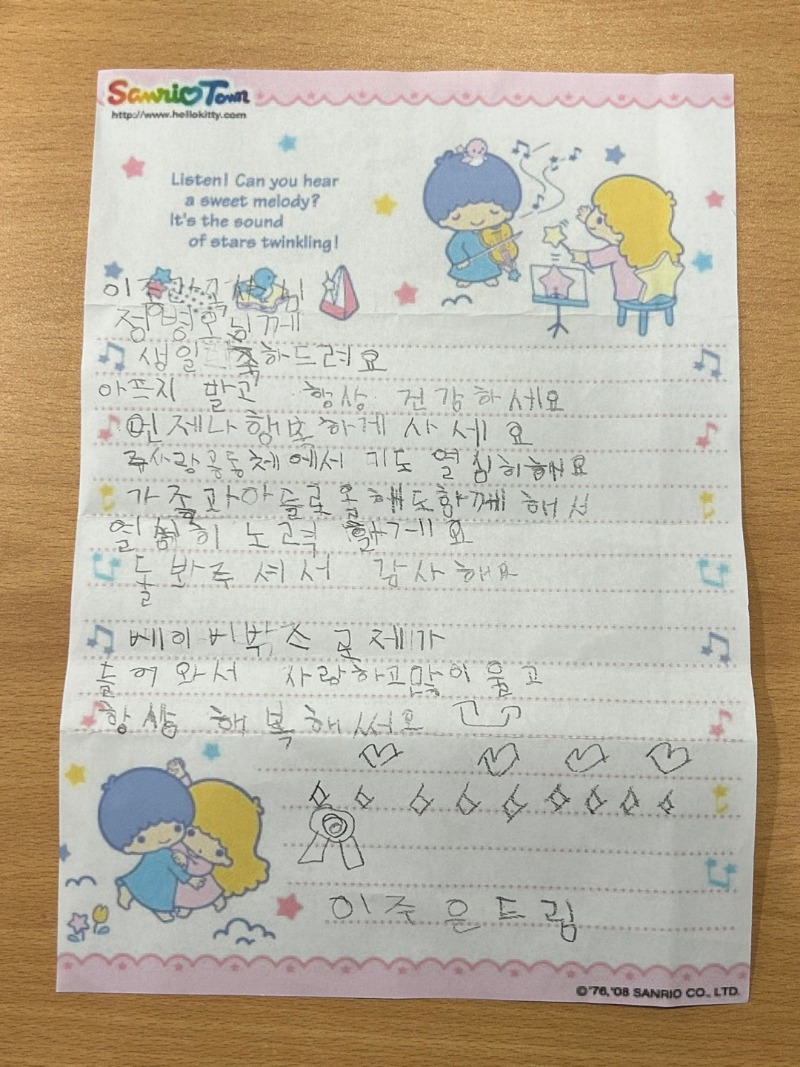 Sanrio Town
http://www.hellokitty.com
Listen! Can you hear
a sweet melody?
It's the sound
of stars twinkling!
님께
생일 축하드려요
아프지 말고 항상 건강하세요
언제나 행복하게 사세요
주사랑공동체에서 기도 열심히해요
해도함께 해서
열심히 노력 할게요
돌봐주셔서 감사해요
베이비밖스
들어와서 사랑하고많이 울고
항상 해복해써요
이주은드림
©'76,'08 SANRIO CO., LTD.